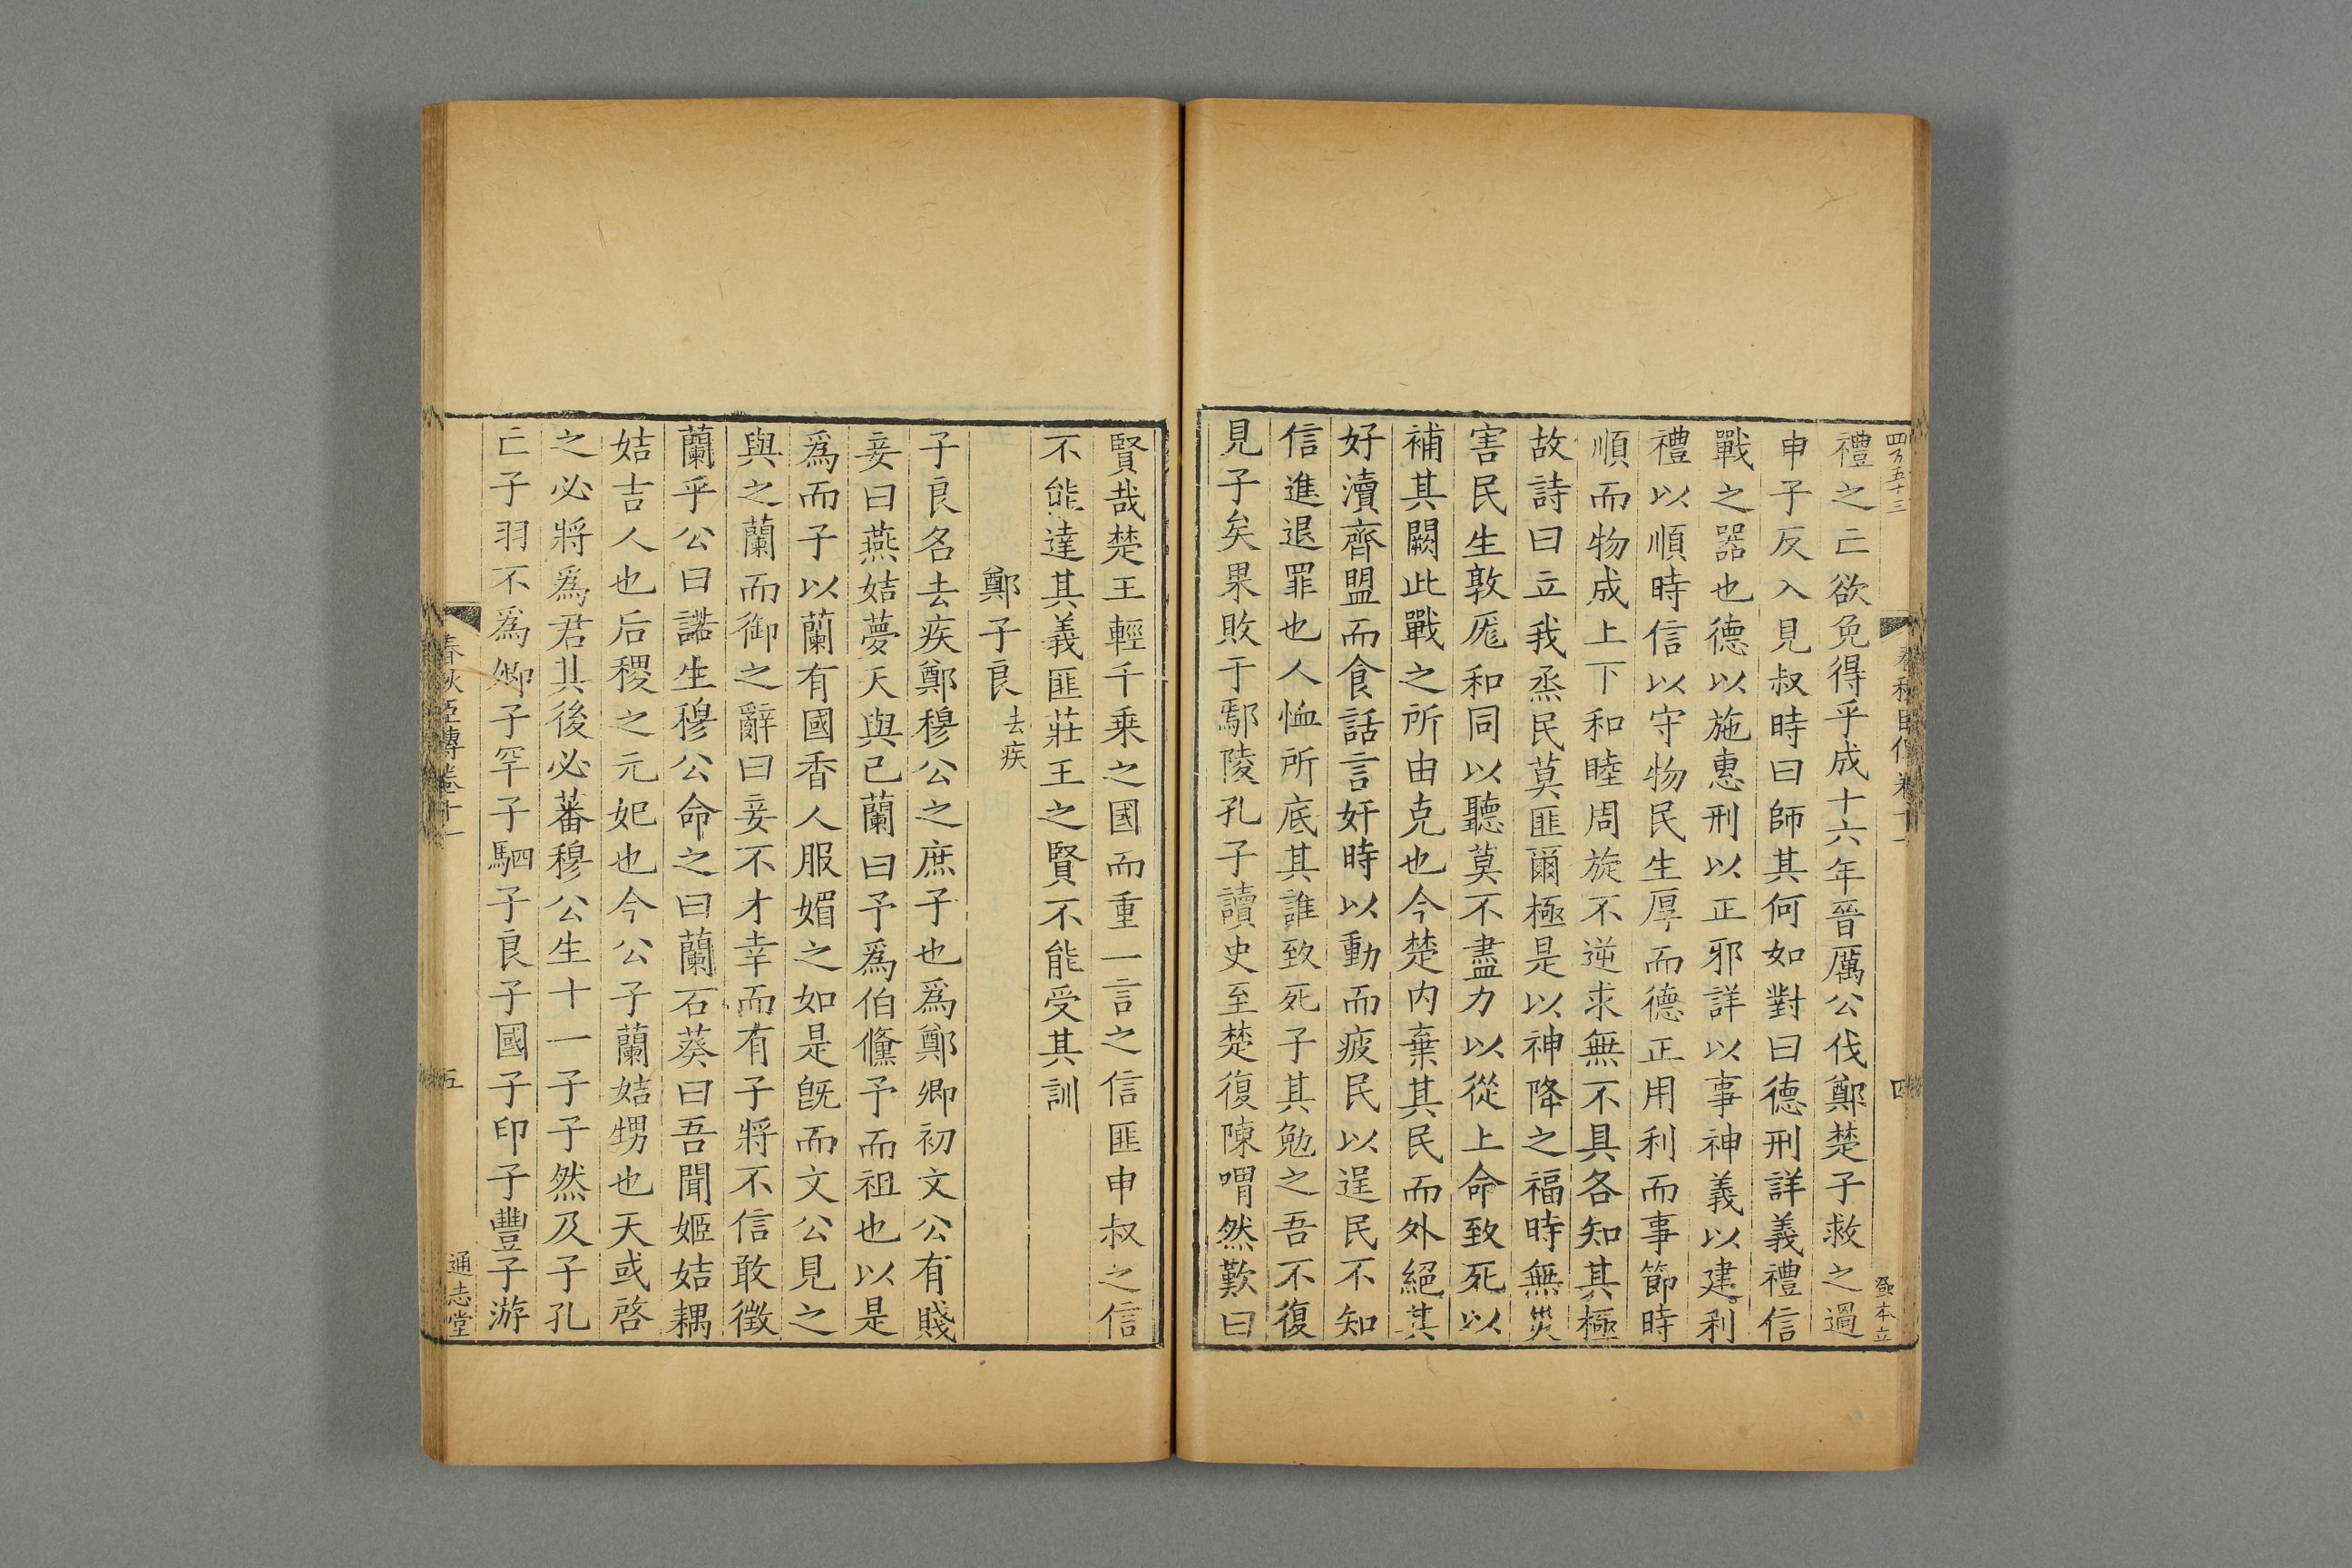 四万五十三
春秋臣傳卷十一
四
本立
禮之亡欲免得乎成十六年晉厲公伐鄭楚子救之過
申子反入見叔時曰師其何如對曰德刑詳義禮信
戰之器也德以施惠刑以正邪詳以事神義以建利
禮以順時信以守物民生厚而德正用利而事節時
順而物成上下和睦周旋不逆求無不具各知其極
故詩曰立我烝民莫匪爾極是以神降之福時無災
害民生敦厖和同以聽莫不盡力以從上命致死以
補其闕此戰之所由克也今楚内棄其民而外絕其
好瀆齊盟而食話言奸時以動而疲民以逞民不知
信進退罪也人恤所底其誰致死子其勉之吾不復
見子矣果敗于鄢陵孔子讀史至楚復陳喟然歎曰
賢哉楚王輕千乗之國而重一言之信匪申叔之信
不能達其義匪莊王之賢不能受其訓
鄭子良去疾
子良名去疾鄭穆公之庶子也爲鄭卿初文公有賤
妾曰燕姞夢天與己蘭曰予爲伯儵予而祖也以是
爲而子以蘭有國香人服媚之如是旣而文公見之
與之蘭而御之辭曰妾不才幸而有子將不信敢徵
蘭乎公曰諾生穆公命之曰蘭石葵曰吾聞姬姞耦
姞吉人也后稷之元妃也今公子蘭姞甥也天或啓
之必將爲君其後必蕃穆公生十一子子然及子孔
亡子羽不爲卿子罕子駟子良子國子印子豐子游
春秋臣傳卷十一
五
通志堂